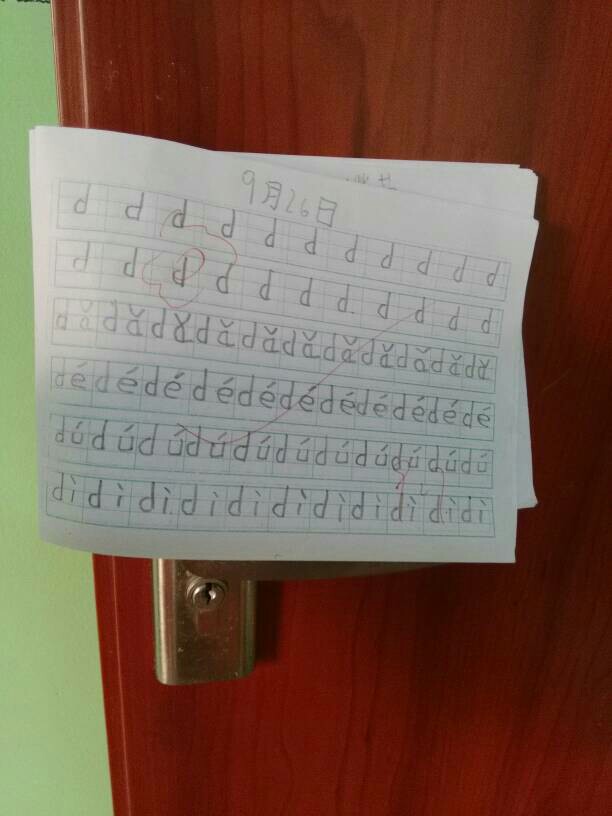 9月26日
d d d d d d d d d d d
d d d d d d d d d d d
dǎ dǎ dǎ dǎ dǎ dǎ dǎ dǎ dǎ dǎ dǎ
dé dé dé dé dé dé dé dé dé dé dé
dú dú dú dú dú dú dú dú dú dú dú
dì dì dì dì dì dì dì dì dì dì dì